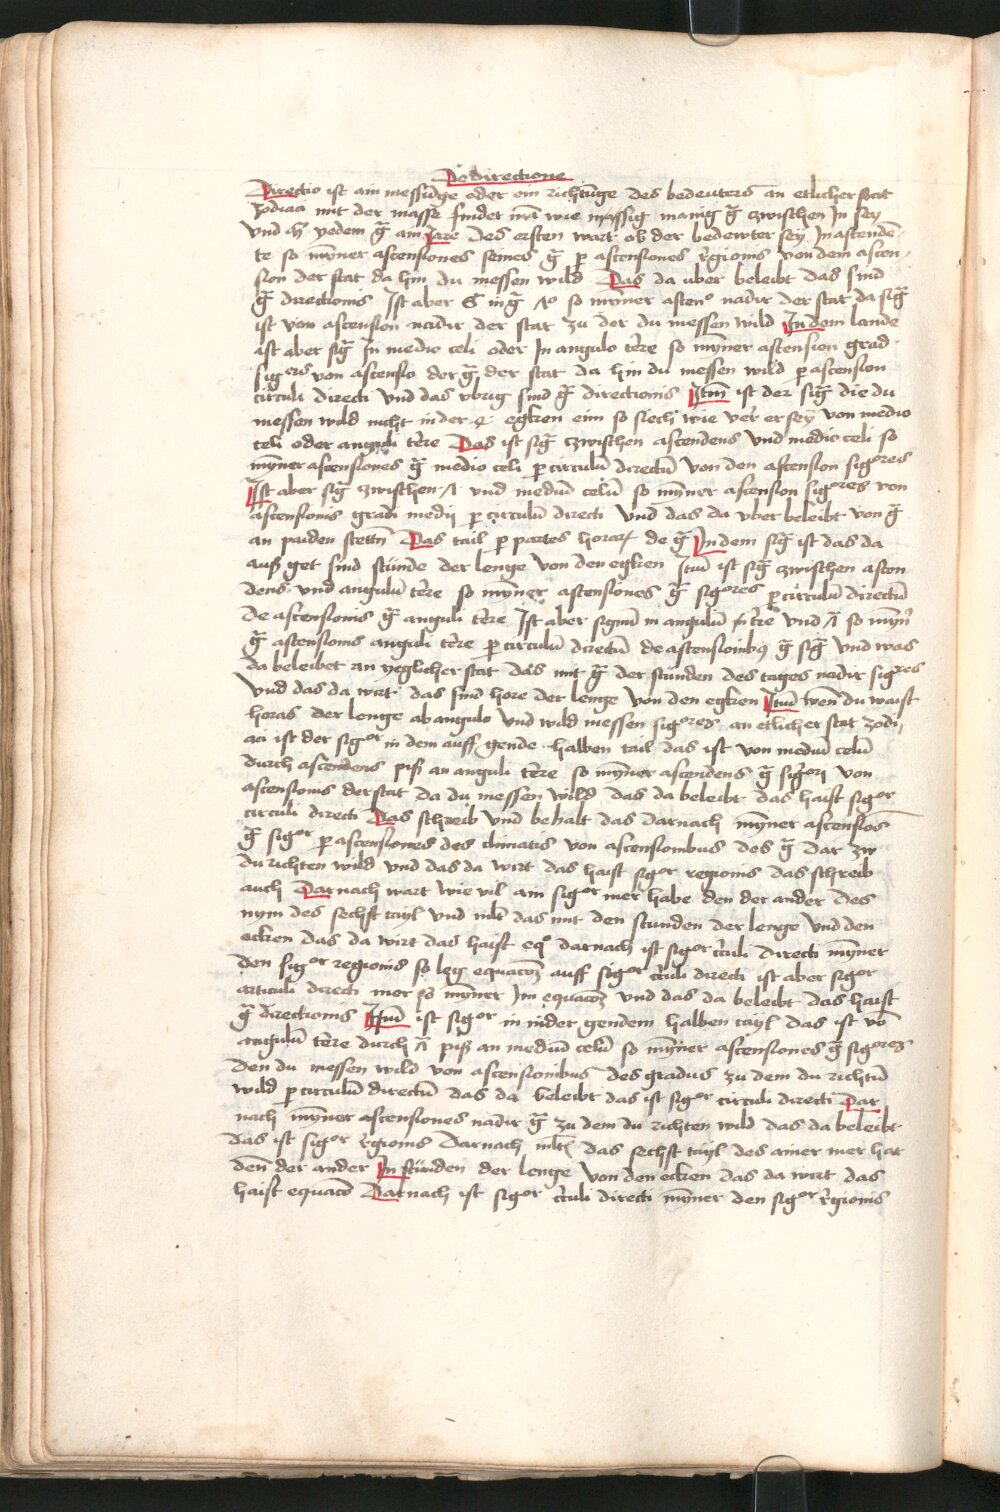 De directione
Directio ist ain messunge oder ein richtunge des bedeuters an etlicher stat
zodiaci mit der masse findet mā wie massig manig g̃ zwischen In sey
Und yedem g̃ ain Jare des ersten wart ob der bedewter sey In ascende
te so mȳner ascensiones seines g̃ p ascensiones r̃gionis von dem ascen
sion der stat da hin du messen wild Das da uber beleibt das sind
g̃ directionis Ist aber in g̃ so mȳner ascenº nadir der stat da sig̃
ist von ascension nadir der stat zu der du messen wild In dem lande
ist aber sig̃ In medio celi oder In angulo tr̃re so mȳner ascension grad
sigoris von ascensio der g̃ der stat da hin du messen wild p ascension
circuli directi Und das vbrig sind g̃ directionis Itm̃ ist der sig̃ die du
messen wild nicht in der egken einn so siech wie ver er sey von medio
celi oder anguli tr̃re Das ist sig̃ zwischen ascendens Und medio celi so
mȳner ascensiones g̃ medio celi p circulū directū von den ascension sigores
Ist aber sig̃ zwischen Λ und mediū celū so mȳner ascension sigores von
ascensionis gradi medij p circulū directi Und das da vber beleibt von g̃
an paiden stetn̄ Das tail p partes horar de g̃ In dem sig̃ ist das da
auß get sind stunde der lenge von den egken Itū ist sig̃ zwischen ascen
dens und angulū tr̃re so mȳner ascensiones g̃ sigores p circulū directū
de ascensionis g̃ anguli tr̃re Ist aber signū in angulū tr̃re Und Λ so mȳn̄
g̃ ascensionis anguli tr̃re p circulū directū de ascensionibus g̃ sig̃ Und was
da beleibet an yeglicher stat das mit g̃ der stunden des tages nadir sigres
Und das da wirt das sind hore der lenge von den egken Itū wen du waist
horas der lenge ab angulo Und wild messen sigores an etlicher stat zodi
aci ist der sigor in dem auff gende halben tail das ist von mediū celū
durch ascendens piß an anguli tr̃re so mȳner ascendens g̃ sigori von
ascensionis der stat da du messen wild das da beleibt das haist sigor
circuli directi Das schreib Und behalt das darnach mȳner ascensiōs
g̃ sigor p ascensiones des climatis von ascensionibus des g̃ dar zw
du richten wild und das da wirt das haist sigor regionis das schreib
auch Darnach wart wie vil ain sigor mer habe den der ander des
nym des sechst tayl Und mlt̃ das mit den stunden der lenge Und den
ecken das da wirt das haist eqº darnach ist sigor cr̃culi directi mȳner
den sigor regionis so leg equacoz auff sigor cr̃culi directi ist aber sigor
articuli directi mer so mȳner Im equacoz Und das da beleibt das haist
g̃ directionis Itm̃ ist sigor in nider gendem halben tayl das ist vō
angulū tr̃re durch Λ piß an mediū celū so mȳner ascensiones g̃ sigores
den du messen wild von ascensionibus des gradus zu dem du richtū
wild p circulū directū das da beleibt das ist sigor circuli directi Dar
nach mȳner ascensiones nadir g̃ zu dem du richten wild das da beleibt
das ist sigor r̃gionis Darnach mlt̃ das sechst tayl des ainer mer hat
denn der ander In stunden der lenge von den ecken das da wirt das
haist equaco Darnach ist sigor cr̃culi directi mȳner den sigor r̃gionis